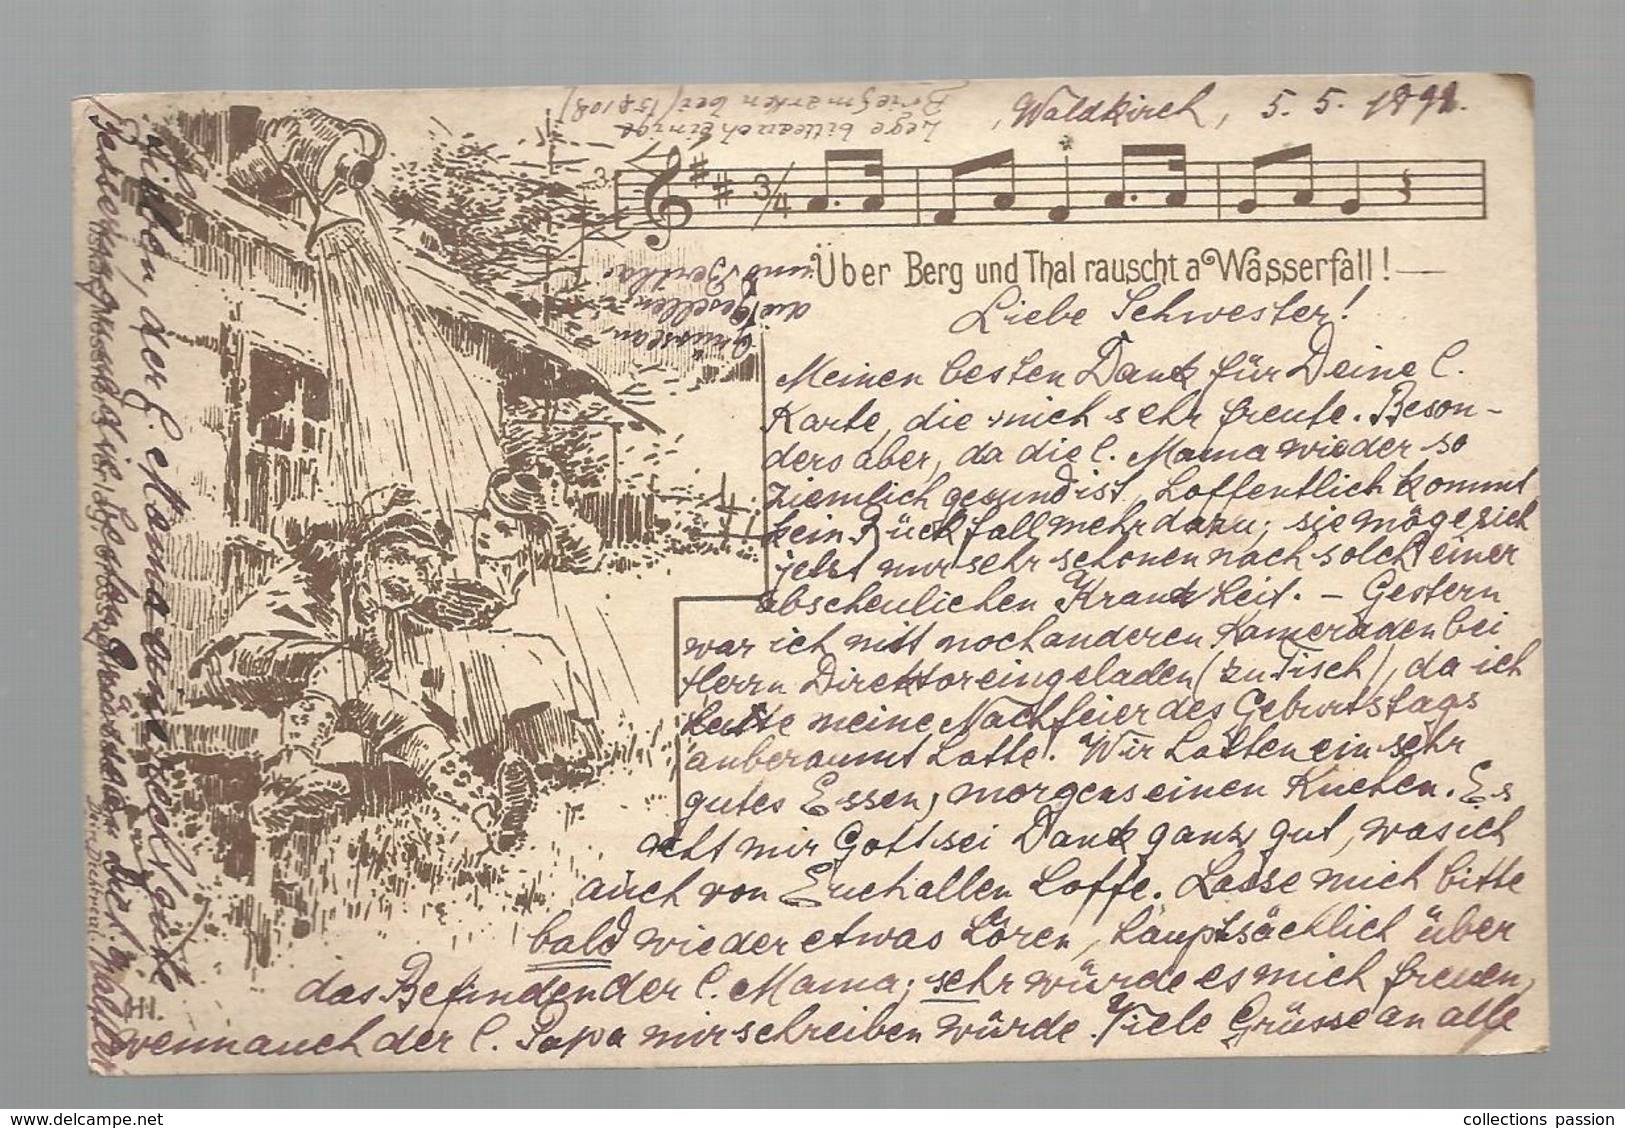 Waldkirch, 5. 5. 1892.
Lege bitte auch einige
Briefmarken bei (5 & 10 ₰)
3.
3/4
Über Berg und Thal rauscht a Wasserfall! —
Liebe Schwester!
Meinen besten Dank für Deine l.
Karte, die mich sehr freute. Beson-
ders aber, da die l. Mama wieder so
ziemlich gesund ist, hoffentlich kommt
kein Rückfall mehr dazu; sie möge sich
jetzt nur sehr schonen nach solch einer
abscheulichen Krankheit. – Gestern
war ich mit noch anderen Kameraden bei
Herrn Direktor eingeladen (zu Tisch), da ich
heute meine Nachfeier des Geburtstags
anberaumt hatte. Wir hatten ein sehr
gutes Essen, morgens einen Kuchen. Es
geht mir Gott sei Dank ganz gut, was ich
auch von Euch allen hoffe. Lasse mich bitte
bald wieder etwas hören, hauptsächlich über
das Befinden der l. Mama; sehr würde es mich freuen,
wenn auch der l. Papa mir schreiben würde. Viele Grüsse an alle
Lieben, der l. Mama eine recht gute
Besserung, Dich
Walther
Grüsse an
die Gesellen
und Bertha.
HI.
collections passion